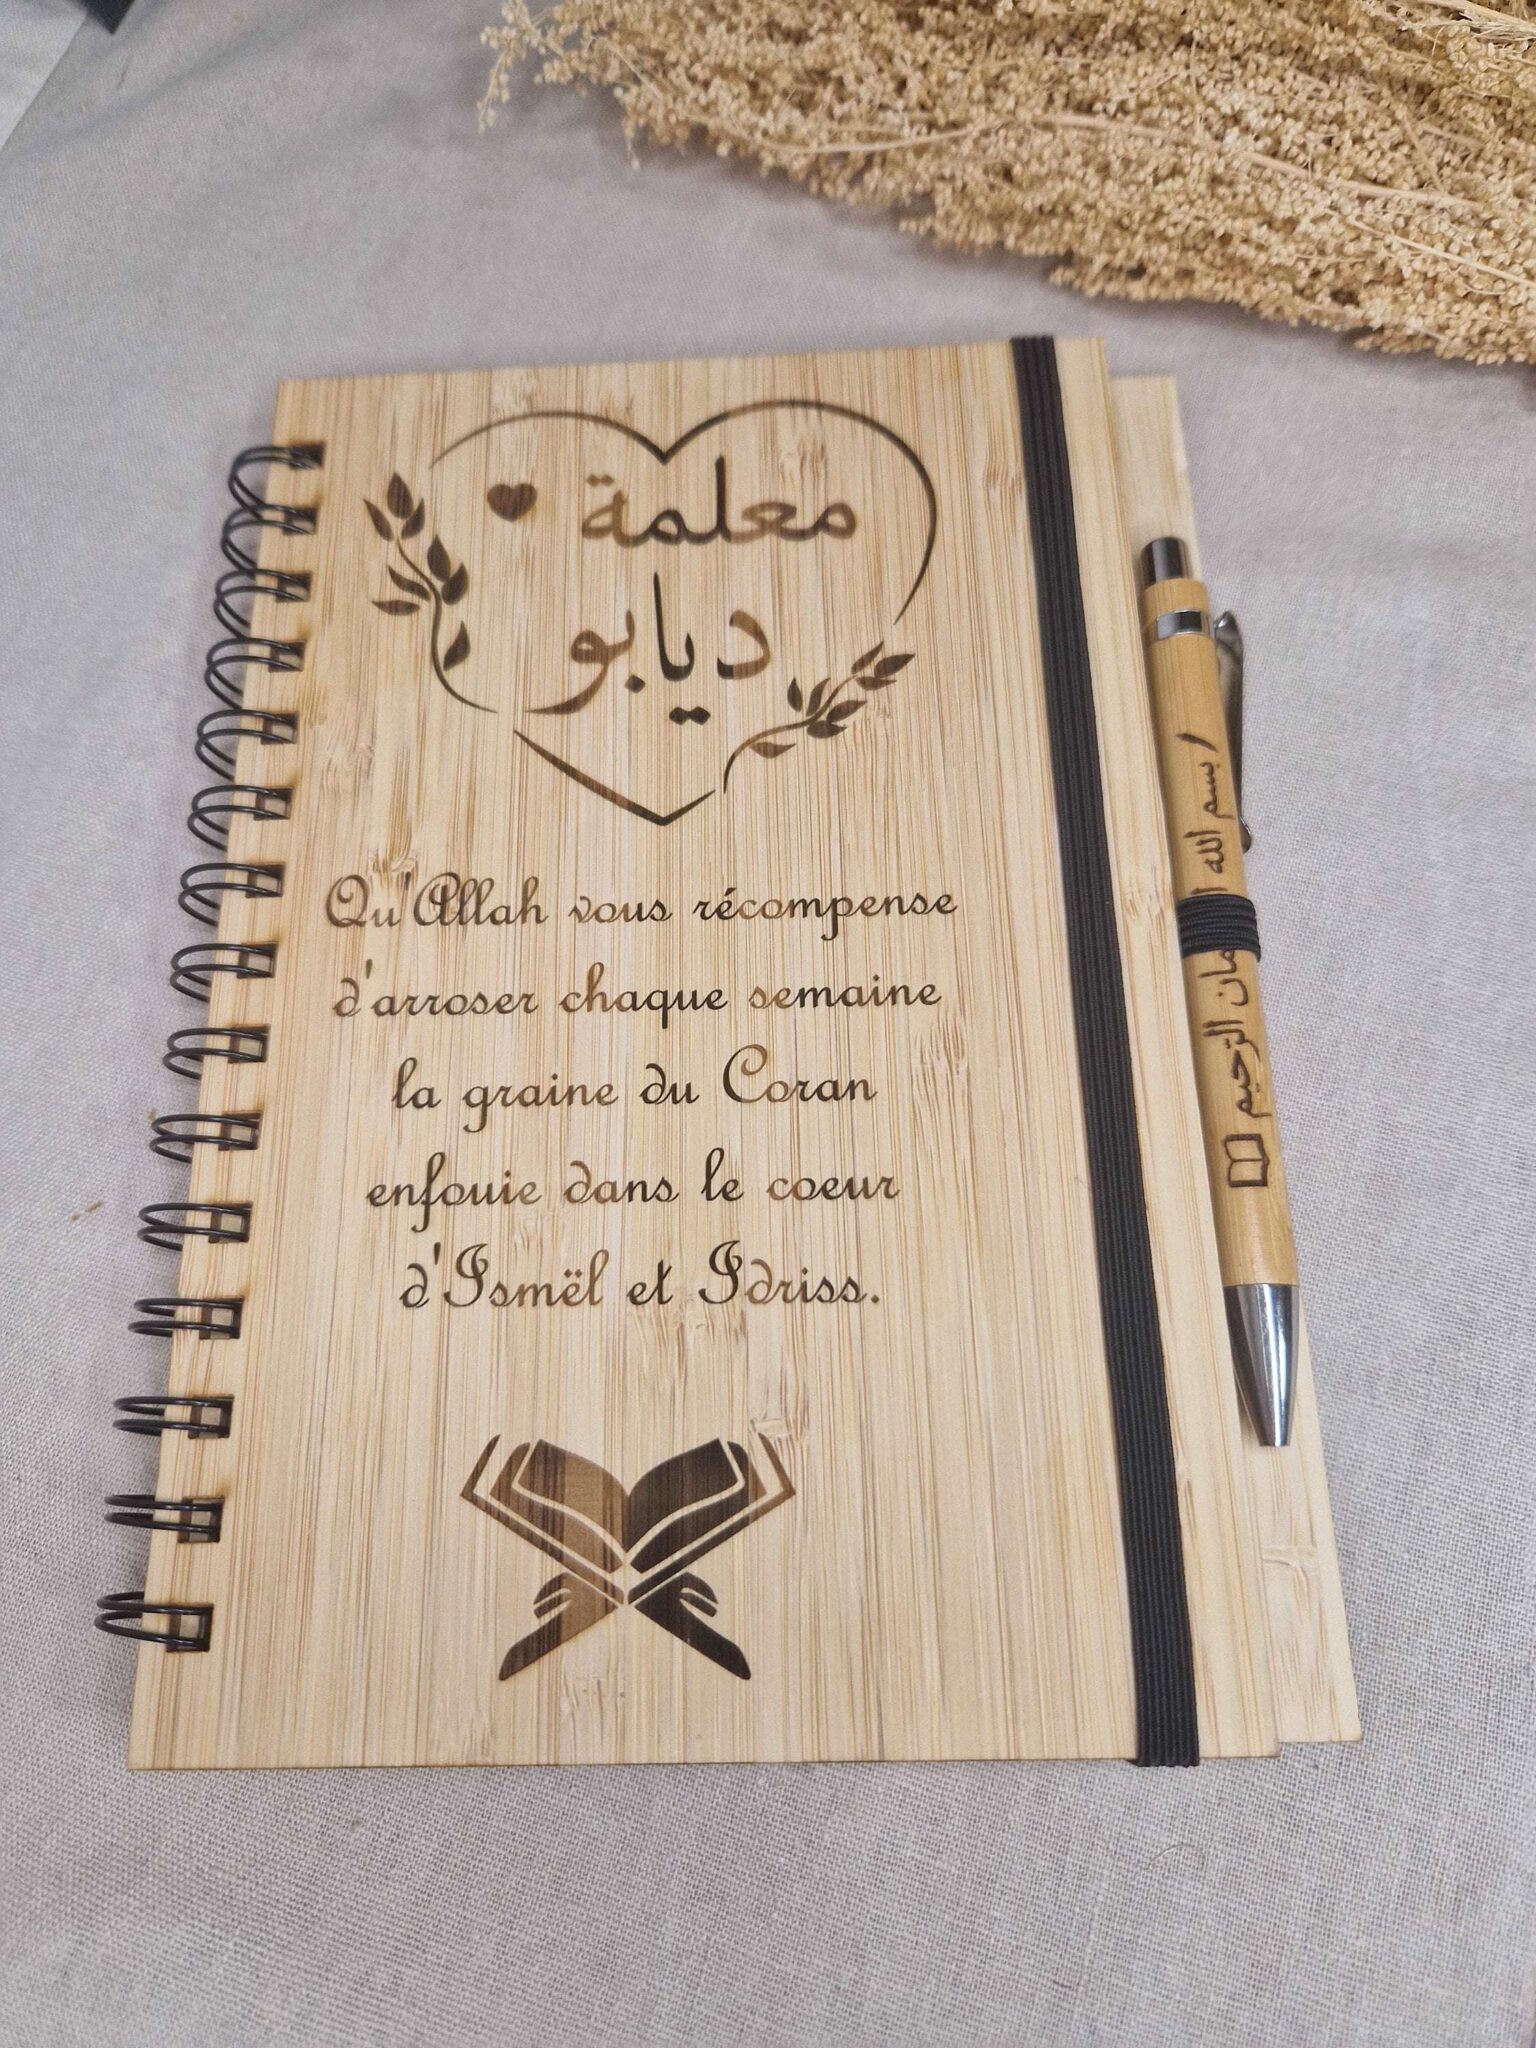 معلمة
ديابو
Qu'Allah vous récompense
d'arroser chaque semaine
la graine du Coran
enfouie dans le coeur
d'Ismël et Idriss.
بسم الله الرحمان الرّحيم